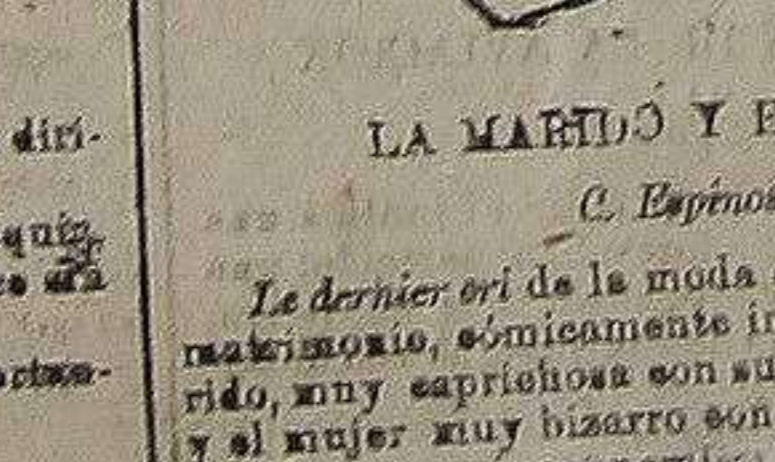 diri-
LA MARIDO Y
C. Espinos
Le dernier cri de la moda
matrimonio, cómicamente
rido, muy caprichosa con su
y el mujer muy bizarro con